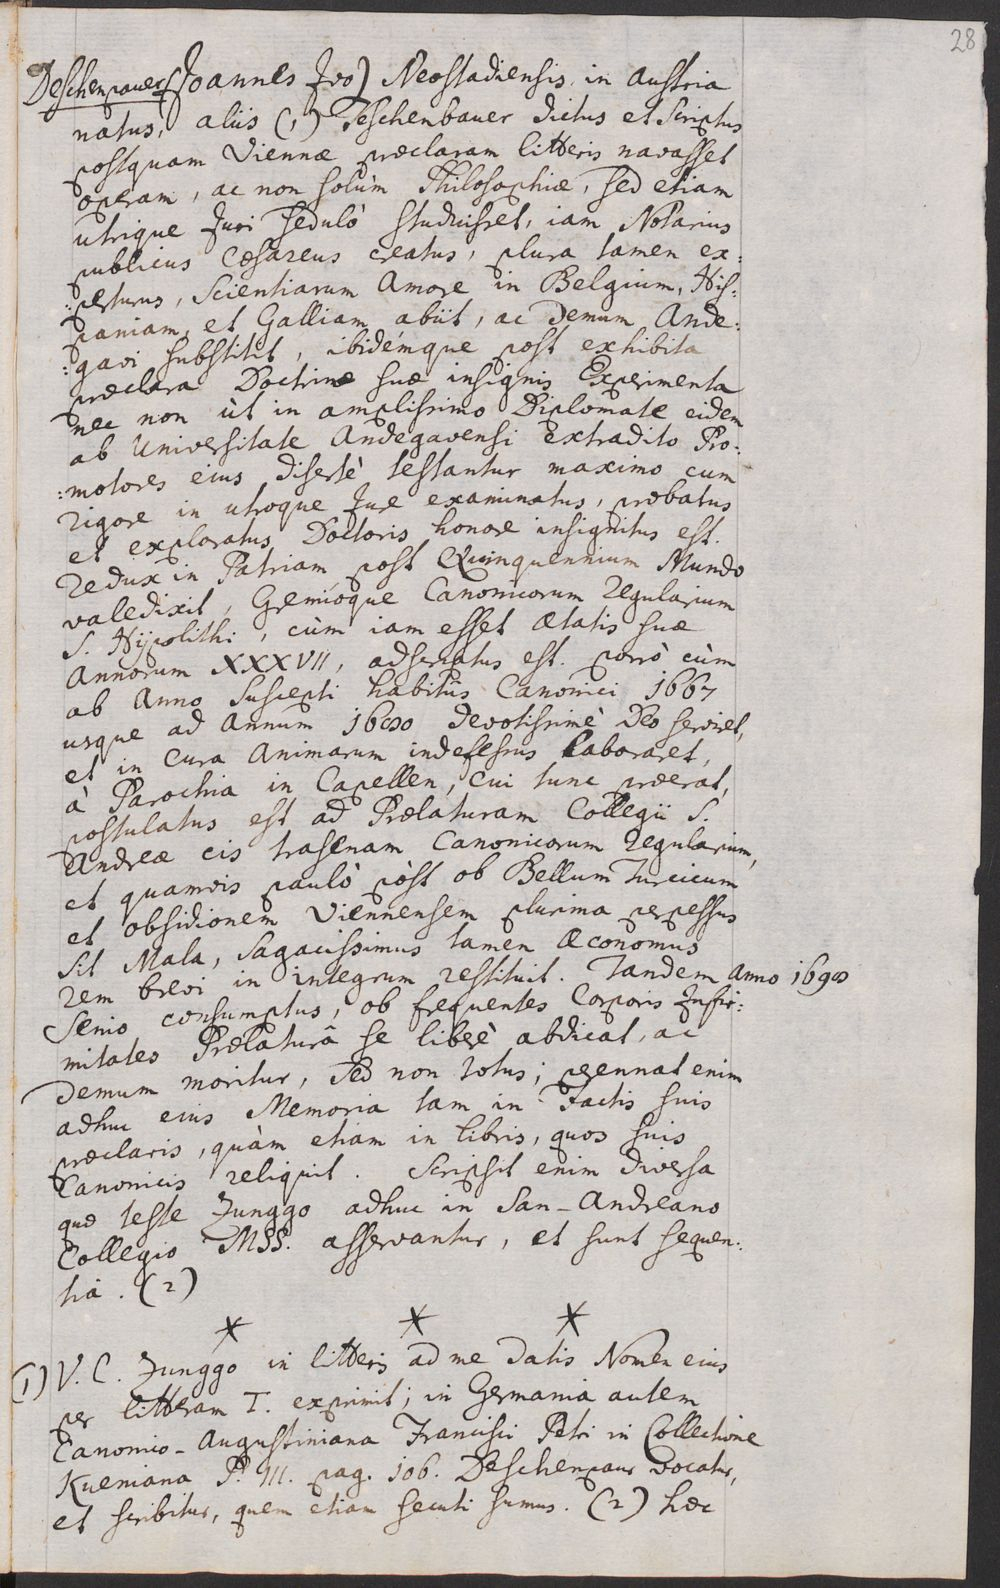 28
Deschenpauer (Joannes Ivo) Neostadiensis in Austria
natus, aliis (1) Teschenbauer dictus et scriptus
postquam Viennæ præclaram litteris navasset
operam, ac non solùm Philosophiæ, sed etiam
utrique Juri sedulò studuisset, iam Notarius
publicus Cæsareus creatus, plura tamen ex:
:perturus, Scientiarum Amore in Belgium, His:
:paniam, et Galliam abiit, ac demum Ande:
:gavi substitit, ibidémque post exhibita
præclara Doctrinæ suæ insignis Experimenta
nec non ùt in amplissimo Diplomate eidem
ab Universitate Andegavensi extradito Pro:
:motores eius disertè testantur maximo cum
rigore in utroque Jure examinatus, probatus
et exploratus Doctoris honore insignitus est.
redux in Patriam post Quinquennium Mundo
valedixit, Gremioque Canonicorum Regularium
S. Hÿpolithi, cùm iam esset ætatis suæ
Annorum XXXVII, adscriptus est. porrò cùm
ab Anno suscepti habitûs Canonici 1667
usque ad Annum 1680 devotissimè Deo serviret,
et in Cura Animarum indefessus laboraret,
à Parochia in Capellen, cui tunc præerat,
postulatus est ad Prælaturam Collegii S.
Andreæ cis trasenam Canonicorum Regularium,
et quamvis paulò pòst ob Bellum Turcicum
et obsidionem Viennensem plurima perpessus
sit Mala, sagacissimus tamen Œconomus
rem brevi in integrum restituit. Tandem Anno 1690
Senio consumptus, ob frequentes Corporis Infir:
mitates Prælaturâ se liberè abdicat, ac
demum moritur, sed non totus; perennat enim
adhuc eius Memoria tam in Factis suis
præclaris, quàm etiam in libris, quos suis
Canonicis reliquit. Scripsit enim diversa
quæ teste Zunggo adhuc in San-Andreano
Collegio MSS. asservantur, et sunt sequen:
tia. (2)
* * *
(1) V. C. Zunggo in litteris ad me datis Nomen eius
per litteram T. exprimit; in Germania autem
Canonico-Augustiniana Francisci Petri in Collectione
Kueniana P. III. pag. 106. Deschenpaur vocatur,
et scribitur, quem etiam secuti sumus. (2) hæc